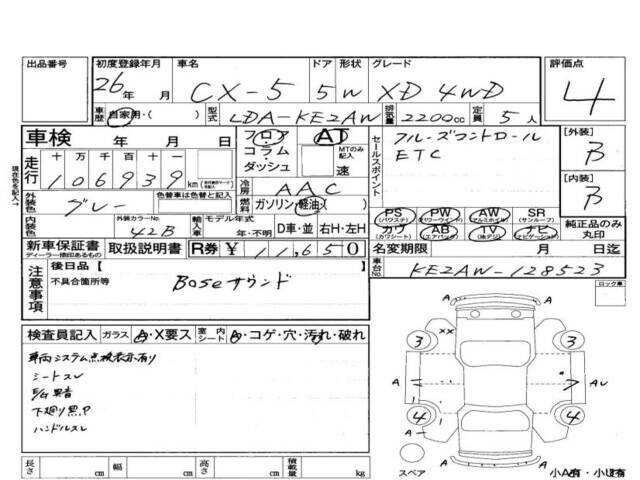 出品番号 初度登録年月 車名 ドア 形状 グレード 評価点
26年 月 CX-5 5 W XD 4WD 4
車歴 自家用・( ) 型式 LDA-KE2AW 排気量 2200cc 定員 5人
車検 年 月 日 フロア AT セールスポイント クルーズコントロール [外装]
コラム MTのみ記入 ETC B
走行 十 万 千 百 十 一 ダッシュ 速
106939 km 冷房 AAC [内装]
外装色 グレー 色替車は色替と記入 燃料 ガソリン・軽油・( ) B
PS PW AW SR
(パワステ) (パワーウインド) (アルミホイル) (サンルーフ)
内装色 外装カラーNo. 42B 輸入車 モデル年式 年・不明 D車・並 右H・左H カワ AB TV ナビ 純正品のみ丸印
(カワシート) (エアバック) (地デジ) (ナビゲーション)
新車保証書 取扱説明書 R券 ¥ 11,650 名変期限 月 日迄
ディーラー捺印あるもの
車台No. KE2AW-128523
注意事項 後日品【 】
不具合箇所等 Boseサウンド
ロック車
検査員記入 ガラス A・X要ス 室内シート A・コゲ・穴・汚れ・破れ
車両システム点検表示有り
シートスレ
異音
下廻り黒P
ハンドルスレ
現在色を記入
XX
3 3
A A AU
4 4
A
A
スペア
小A有・小U有
長さ cm 幅 cm 高さ cm 積載量 kg